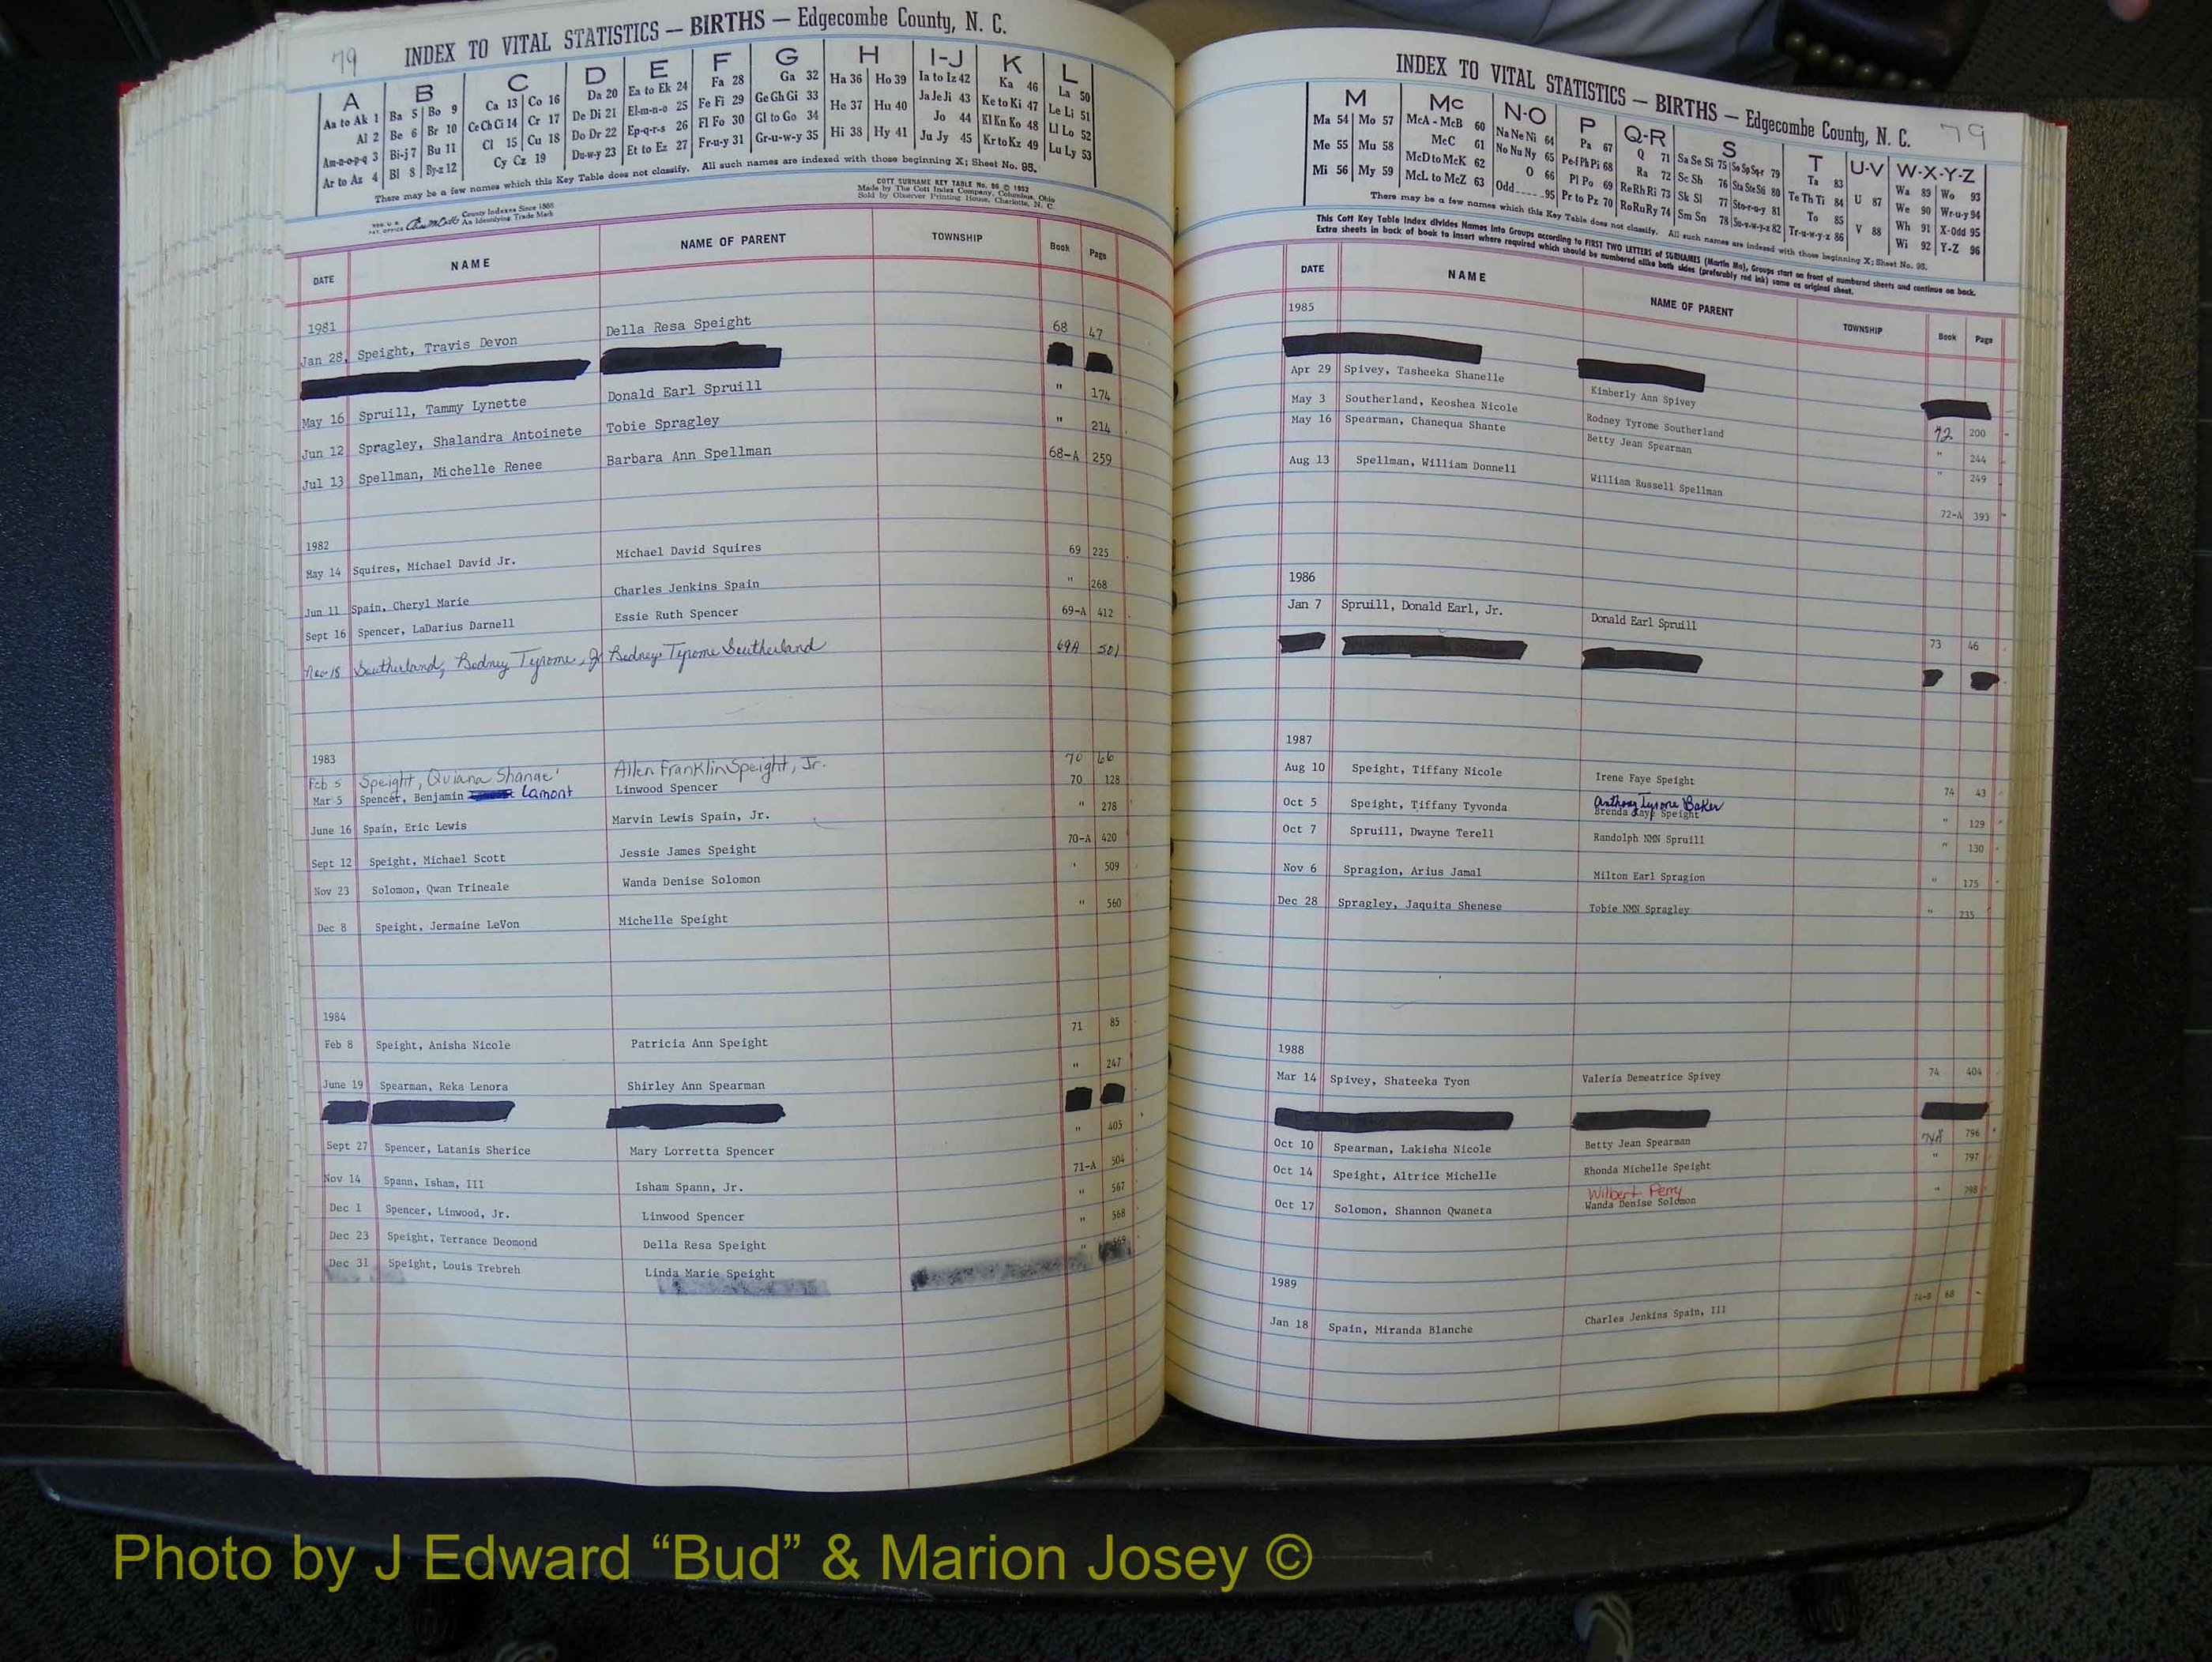 79
INDEX TO VITAL STATISTICS — BIRTHS — Edgecombe County, N. C.
A B C D E F G H I-J K L
Aa to Ak 1 Ba 5 Bo 9 Ca 13 Co 16 Da 20 Ea to Ek 24 Fa 28 Ga 32 Ha 36 Ho 39 Ia to Iz 42 Ka 46 La 50
Al 2 Be 6 Br 10 Ce Ch Ci 14 Cr 17 De Di 21 El-m-n-o 25 Fe Fi 29 Ge Gh Gi 33 He 37 Hu 40 Ja Je Ji 43 Ke to Ki 47 Le Li 51
Am-n-o-p-q 3 Bi-j 7 Bu 11 Cl 15 Cu 18 Do Dr 22 Ep-q-r-s 26 Fl Fo 30 Gl to Go 34 Hi 38 Hy 41 Jo 44 Kl Kn Ko 48 Ll Lo 52
Ar to Az 4 Bl 8 By-z 12 Cy Cz 19 Du-w-y 23 Et to Ez 27 Fr-u-y 31 Gr-u-w-y 35 Ju Jy 45 Kr to Kz 49 Lu Ly 53
There may be a few names which this Key Table does not classify. All such names are indexed with those beginning X; Sheet No. 95.
COTT SURNAME KEY TABLE No. 96 © 1952
Made by The Cott Index Company, Columbus, Ohio
Sold by Observer Printing House, Charlotte, N. C.
County Indexes Since 1888
An Identifying Trade Mark
DATE NAME NAME OF PARENT TOWNSHIP Book Page
1981
Jan 28, Speight, Travis Devon Della Resa Speight 68 47
May 16 Spruill, Tammy Lynette Donald Earl Spruill " 174
Jun 12 Spragley, Shalandra Antoinete Tobie Spragley " 214
Jul 13 Spellman, Michelle Renee Barbara Ann Spellman 68-A 259
1982
May 14 Squires, Michael David Jr. Michael David Squires 69 225
Jun 11 Spain, Cheryl Marie Charles Jenkins Spain " 268
Sept 16 Spencer, LaDarius Darnell Essie Ruth Spencer 69-A 412
Nov 18 Southerland, Rodney Tyrome, Jr Rodney Tyrome Southerland 69A 501
1983
Feb 5 Speight, Quiana Shanae' Allen Franklin Speight, Jr. 70 66
Mar 5 Spencer, Benjamin Lamont Linwood Spencer 70 128
June 16 Spain, Eric Lewis Marvin Lewis Spain, Jr. " 278
Sept 12 Speight, Michael Scott Jessie James Speight 70-A 420
Nov 23 Solomon, Qwan Trineale Wanda Denise Solomon " 509
Dec 8 Speight, Jermaine LeVon Michelle Speight " 560
1984
Feb 8 Speight, Anisha Nicole Patricia Ann Speight 71 85
June 19 Spearman, Reka Lenora Shirley Ann Spearman " 247
Sept 27 Spencer, Latanis Sherice Mary Lorretta Spencer " 405
Nov 14 Spann, Isham, III Isham Spann, Jr. 71-A 504
Dec 1 Spencer, Linwood, Jr. Linwood Spencer " 567
Dec 23 Speight, Terrance Deomond Della Resa Speight " 568
Dec 31 Speight, Louis Trebreh Linda Marie Speight " 569
INDEX TO VITAL STATISTICS — BIRTHS — Edgecombe County, N. C. 79
M Mc N-O P Q-R S T U-V W-X-Y-Z
Ma 54 Mo 57 McA - McB 60 Na Ne Ni 64 Pa 67 Q 71 Sa Se Si 75 So Sp Sq-r 79 Ta 83 U 87 Wa 89 Wo 93
Me 55 Mu 58 McC 61 No Nu Ny 65 Pe-f Ph Pi 68 Ra 72 Sc Sh 76 Sta Ste Sti 80 Te Th Ti 84 V 88 We 90 Wr-u-y 94
Mi 56 My 59 McD to McK 62 O 66 Pl Po 69 Re Rh Ri 73 Sk Sl 77 Sto-r-u-y 81 To 85 Wh 91 X-Odd 95
McL to McZ 63 Odd 95 Pr to Pz 70 Ro Ru Ry 74 Sm Sn 78 Su-v-w-y-z 82 Tr-u-w-y-z 86 Wi 92 Y-Z 96
There may be a few names which this Key Table does not classify. All such names are indexed with those beginning X; Sheet No. 95.
This Cott Key Table Index divides Names into Groups according to FIRST TWO LETTERS of SURNAMES (Martin Ma), Groups start on front of numbered sheets and continue on back.
Extra sheets in back of book to insert where required which should be numbered alike both sides (preferably red ink) same as original sheet.
DATE NAME NAME OF PARENT TOWNSHIP Book Page
1985
Apr 29 Spivey, Tasheeka Shanelle Kimberly Ann Spivey 72 200
May 3 Southerland, Keoshea Nicole Rodney Tyrome Southerland " 244
May 16 Spearman, Chanequa Shante Betty Jean Spearman " 249
Aug 13 Spellman, William Donnell William Russell Spellman 72-A 393
1986
Jan 7 Spruill, Donald Earl, Jr. Donald Earl Spruill 73 46
1987
Aug 10 Speight, Tiffany Nicole Irene Faye Speight 74 43
Anthony Tyrone Baker
Oct 5 Speight, Tiffany Tyvonda Brenda Kaye Speight " 129
Oct 7 Spruill, Dwayne Terell Randolph NMN Spruill " 130
Nov 6 Spragion, Arius Jamal Milton Earl Spragion " 175
Dec 28 Spragley, Jaquita Shenese Tobie NMN Spragley " 235
1988
Mar 14 Spivey, Shateeka Tyon Valeria Demeatrice Spivey 74 404
Oct 10 Spearman, Lakisha Nicole Betty Jean Spearman 74A 796
Oct 14 Speight, Altrice Michelle Rhonda Michelle Speight " 797
Wilbert Perry
Oct 17 Solomon, Shannon Qwaneta Wanda Denise Solomon " 798
1989
Jan 18 Spain, Miranda Blanche Charles Jenkins Spain, III 74-B 68
Photo by J Edward “Bud” & Marion Josey ©